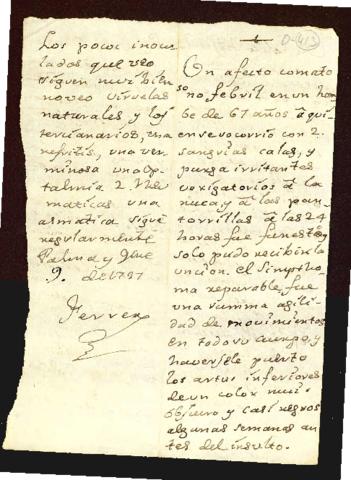 Los pocos inocu
lados que veo
siguen mui bien
no veo viruelas
naturales y los
tercianarios, una
nefritis, una ver
minosa una op
talmia 2. Reu
maticas una
asmatica sigue
regularmente
Palma y Jue
9. de 1787
Ferrer
D-(413)
Un afecto comato
so no febril en un hom
be de 67 años à quien
en se ocurrio con 2.
sangrias calas, y
purga irritantes
vexigatorios à la
nuca, y à las pan
torrillas à las 24
horas fue funesto y
solo pudo recibir la
uncion. El Simptho
ma reparable, fue
una summa agili
dad de movimientos
en todo su cuerpo, y
haversele puesto
los artus inferiores
de un color mui
obscuro y casi negros
algunas semanas an
tes del insulto.